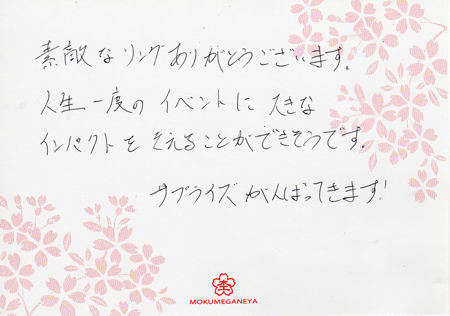 素敵なリングありがとうございます。
人生一度のイベントに大きな
インパクトをそえることができそうです。
サプライズがんばってきます!
MOKUMEGANEYA